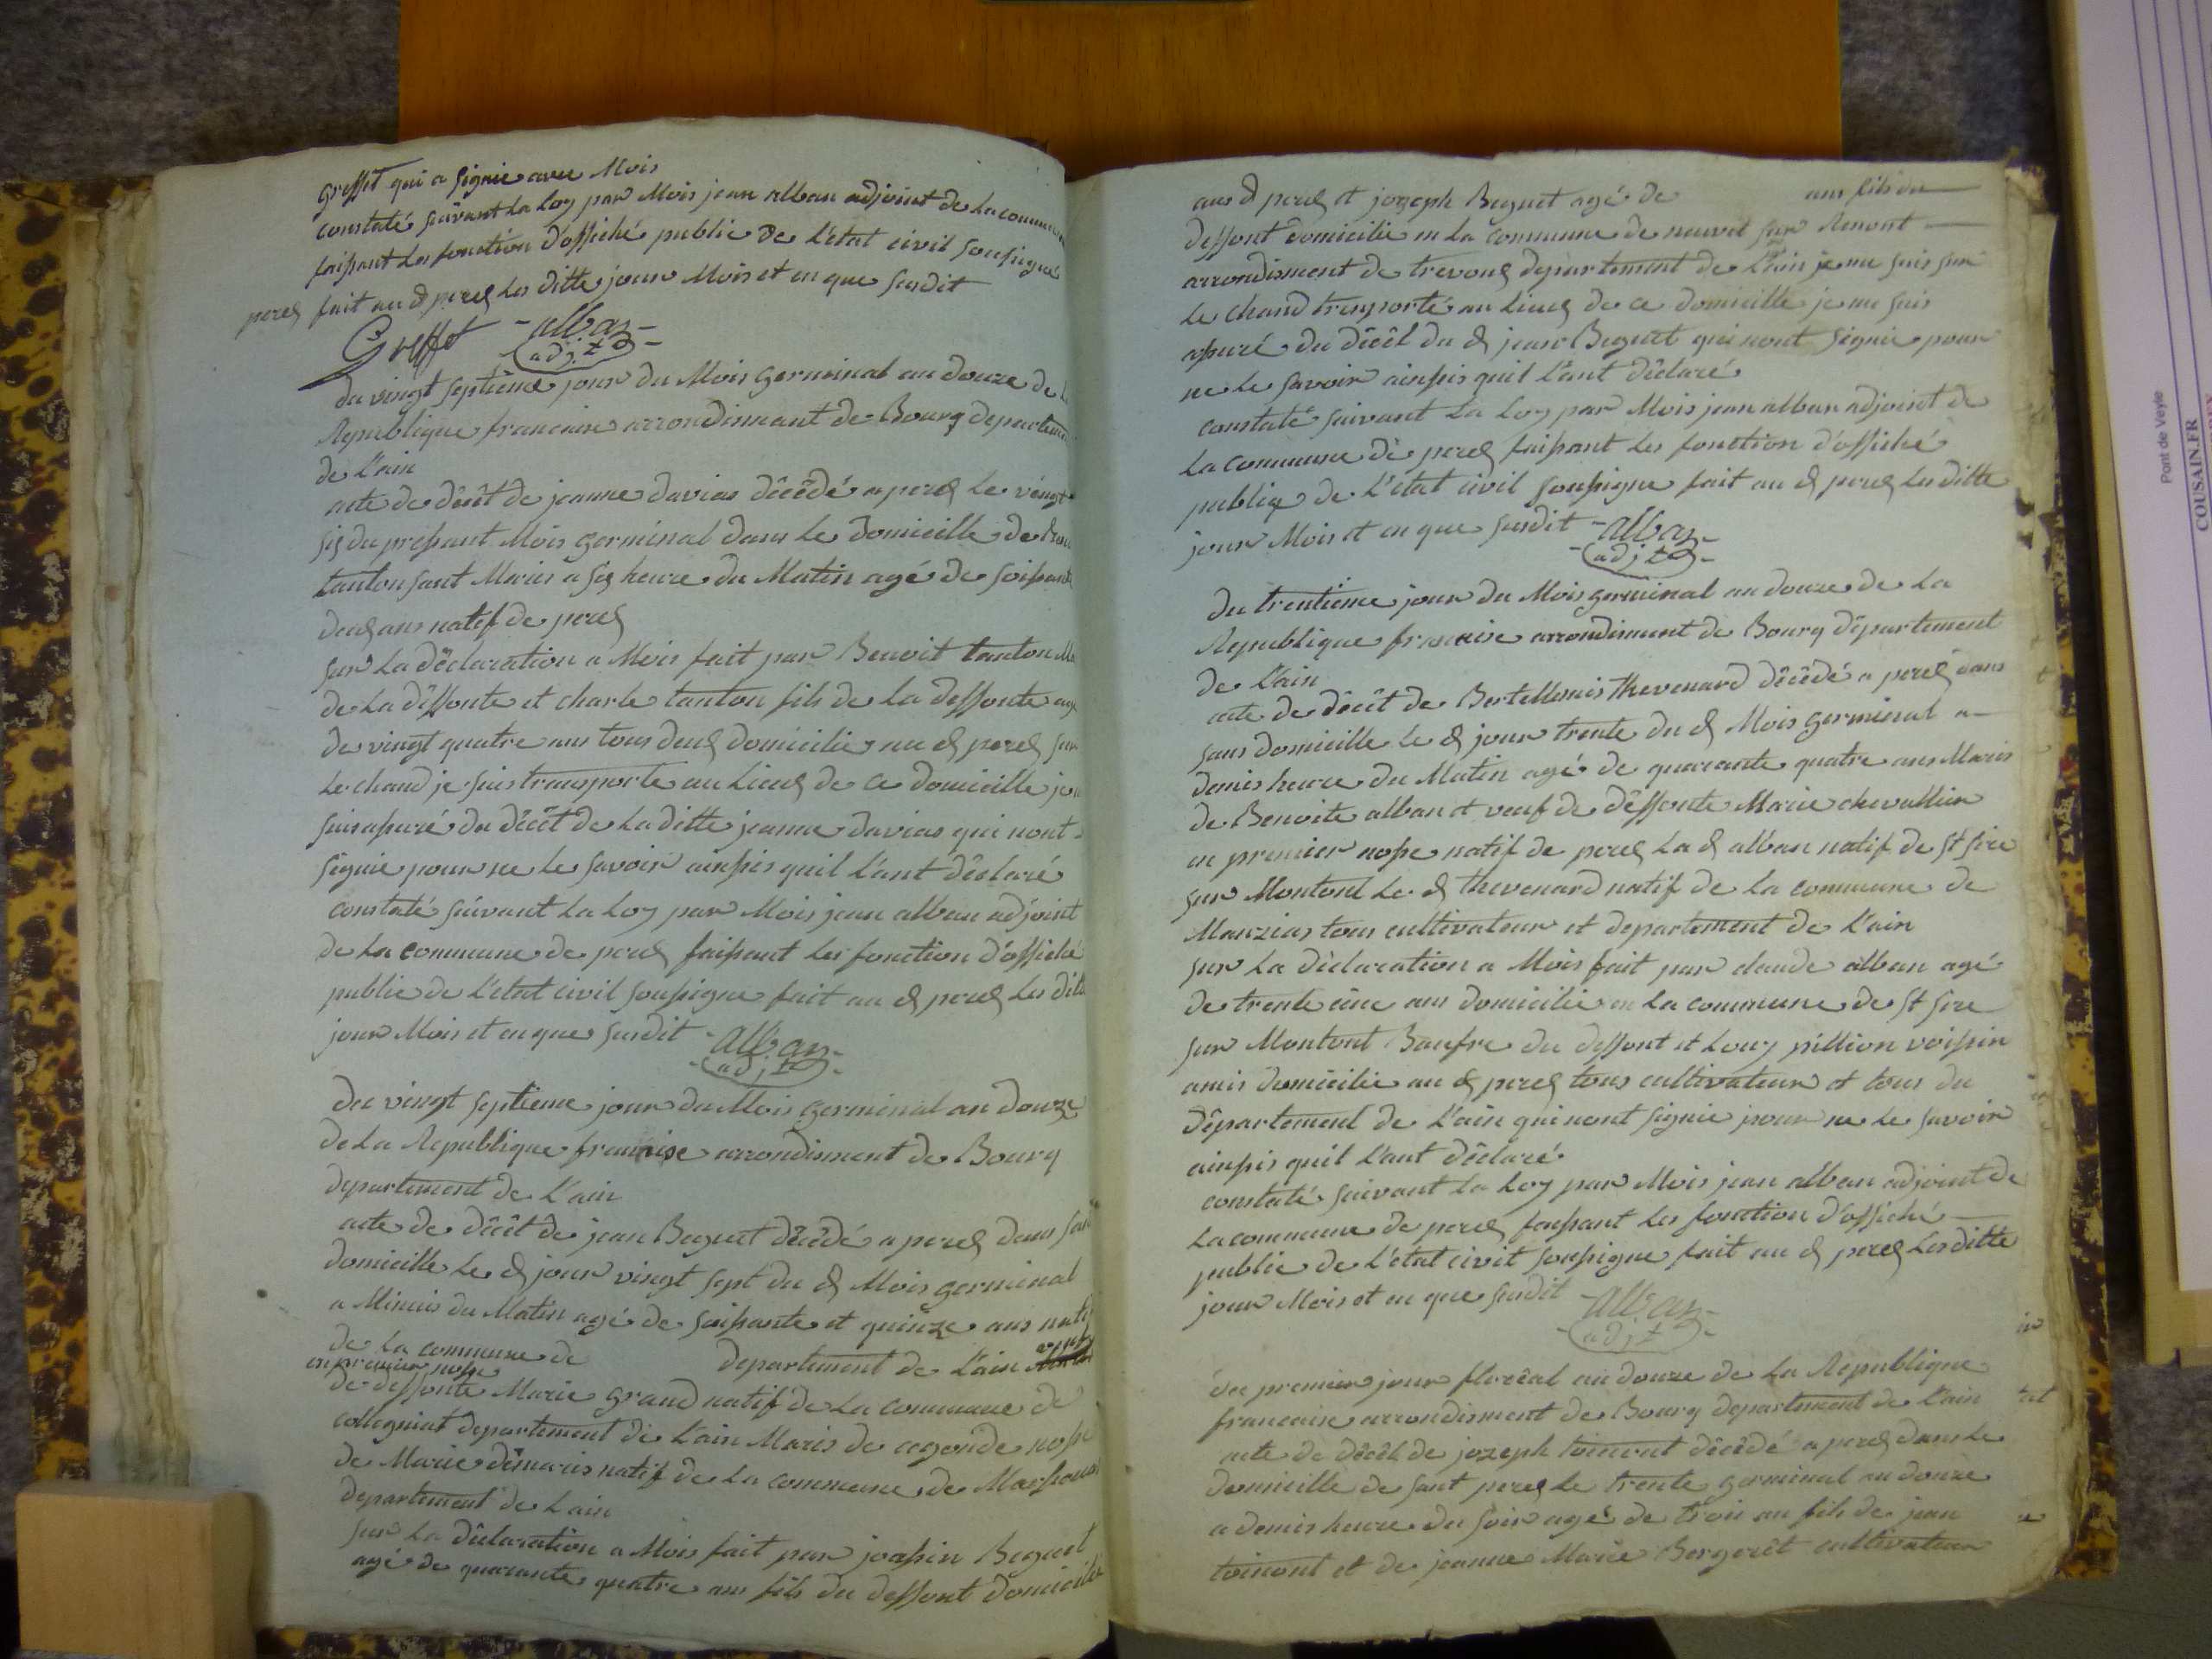 greffet qui a signie avec Mois
constaté suivant la loy par Mois jean alban adjoint de la commune
faissant les fonction d'offiché public de l'état civil soussigné
perex fait au d perex les ditte jour Mois et en que susdit
Greffet -alban-
adj.t
du vingt septième jour du Mois germinal an douze de la
Republique francaise arrondismant de Bourg departement
de l'ain
acte de décêt de jeanne davias décêdé a perex le vingt
six du pressant Mois germinal dans le domicille de
tanton sant Maries a six heure du Matin agé de soissante
deux ans natif de perex
sur la déclaration a Mois fait par Benoit tanton
de la déffonte et charle tanton fils de la deffonte agé
de vingt quatre ans tous deux domicilie au d perex sur
le chand je suis transporte au lieux de ce domicille je
suis assuré du décêt de la ditte jeanne davias qui nont
signie pour ne le savoir ainssis quil l'ant déclaré
constaté suivant la loy par Mois jean alban adjoint
de la commune de perex faissant les fonction d'offiché
public de l'état civil soussigne fait au d perex les ditte
jour Mois et en que susdit -alban-
adj.t
du vingt septième jour du Mois germinal an douze
de la Republique francaise arrondisment de Bourg
departement de l'ain
acte de décêt de jean Beguet décêdé a perex dans sant
domicille le d jour vingt sept du d Mois germinal
a Minuis du Matin agé de soissante et quinze ans natif
de la commune de departement de l'ain veuf
en premier nosse
de deffonte Marie grand natif de la commune de
collegniat departement de l'ain Maris de cegonde nosse
de Marie démaris natif de la commune de Marssonas
departement de l'ain
sur la déclaration a Mois fait par joassin Beguet
agé de quarante quatre ans fils du deffont domicilie
au d perex et jozeph Beguet agé de ans fils du
deffont domicilie en la commune de neuvil sur Renont
arrondisment de trevoux departement de l'ain je me suis sur
le chand tresporté au lieux de ce domicille je me suis
assuré du décêt du d jean Beguet qui nont signie pour
ne le savoir ainssis quil l'ant déclaré
constaté suivant la loy par Mois jean alban adjoint de
la commune de perex faissant les fonction d'offiché
publiq de l'état civil soussigne fait au d perex les ditte
jour Mois et en que susdit -alban-
adj.t
du trentieme jour du Mois germinal an douze de la
Republique francaise arrondisment de Bourg département
de l'ain
acte de décêt de Bertellemis thevenard décêdé a perex dans
sans domicille le d jour trente du d Mois germinal a
demis heure du Matin agé de quarante quatre ans Maris
de Benoite alban et veuf de déffonte Marie chevallier
en premier nosse natif de perex la d alban natif de st sire
sur Montont le d thevenard natif de la commune de
Manzias tous cultivateur et departement de l'ain
sur la déclaration a Mois fait par claude alban agé
de trente cinc ans domicilie en la commune de st sire
sur Montont Baufre du deffont et Louy pillion voissin
amis domicilie au d perex tous cultivateur et tous du
département de l'ain qui nont signie pour ne le savoir
ainssis quil l'ant déclaré
constaté suivant la loy par Mois jean alban adjoint de
la commune de perex faissant les fonction d'offiché
public de l'état civit soussigne fait au d perex les ditte
jour Mois et en que susdit -alban-
adj.t
du premier jour floréal an douze de la République
francaise arrondisment de Bourg departement de l'ain
acte de décêt de jozeph toinont décêdé a perex dans le
domicille de sant perex le trente germinal an douze
a demis heure du soir agé de trois an fils de jean
toinont et de jeanne Marie Bergerêt cultivateur
Pont de Veyle
COUSAIN.FR